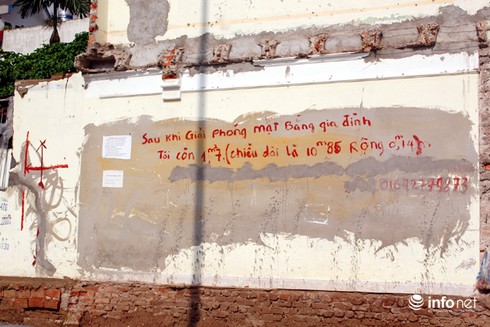 Sau khi Giải phóng mặt Bằng gia đình
Tôi còn 1m²7. (chiều dài là 10m85 Rộng 0m14).
infonet